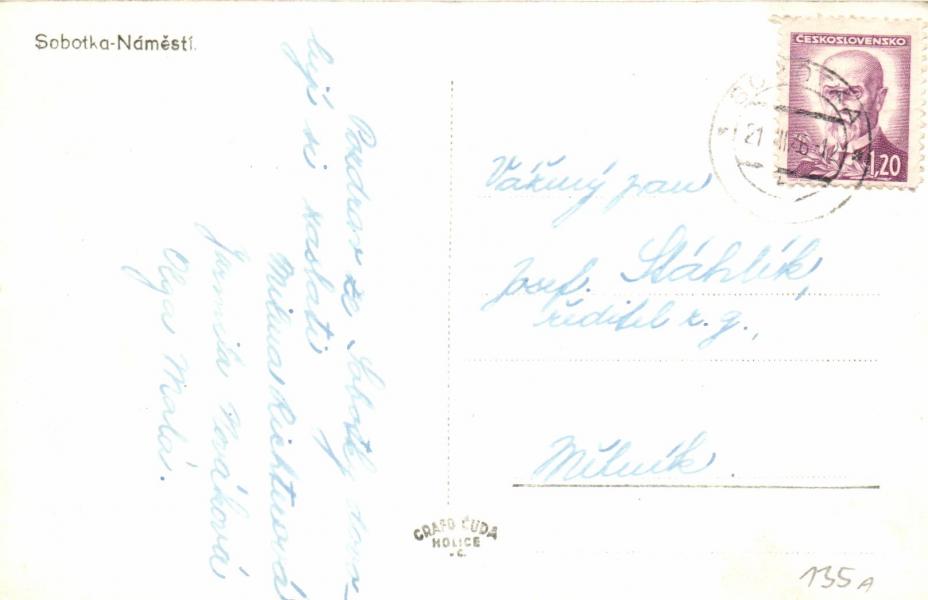 Sobotka-Náměstí.
Pozdrav ze Sobotky dovo-
lují si zaslati
Miluna Richtrová
Jarmila Nováková
Olga Malá.
ČESKOSLOVENSKO
1,20
Vážený pan
Josef Stáhlík,
ředitel r. g.,
Mělník.
GRAFO ČUDA
HOLICE
v Č.
135A